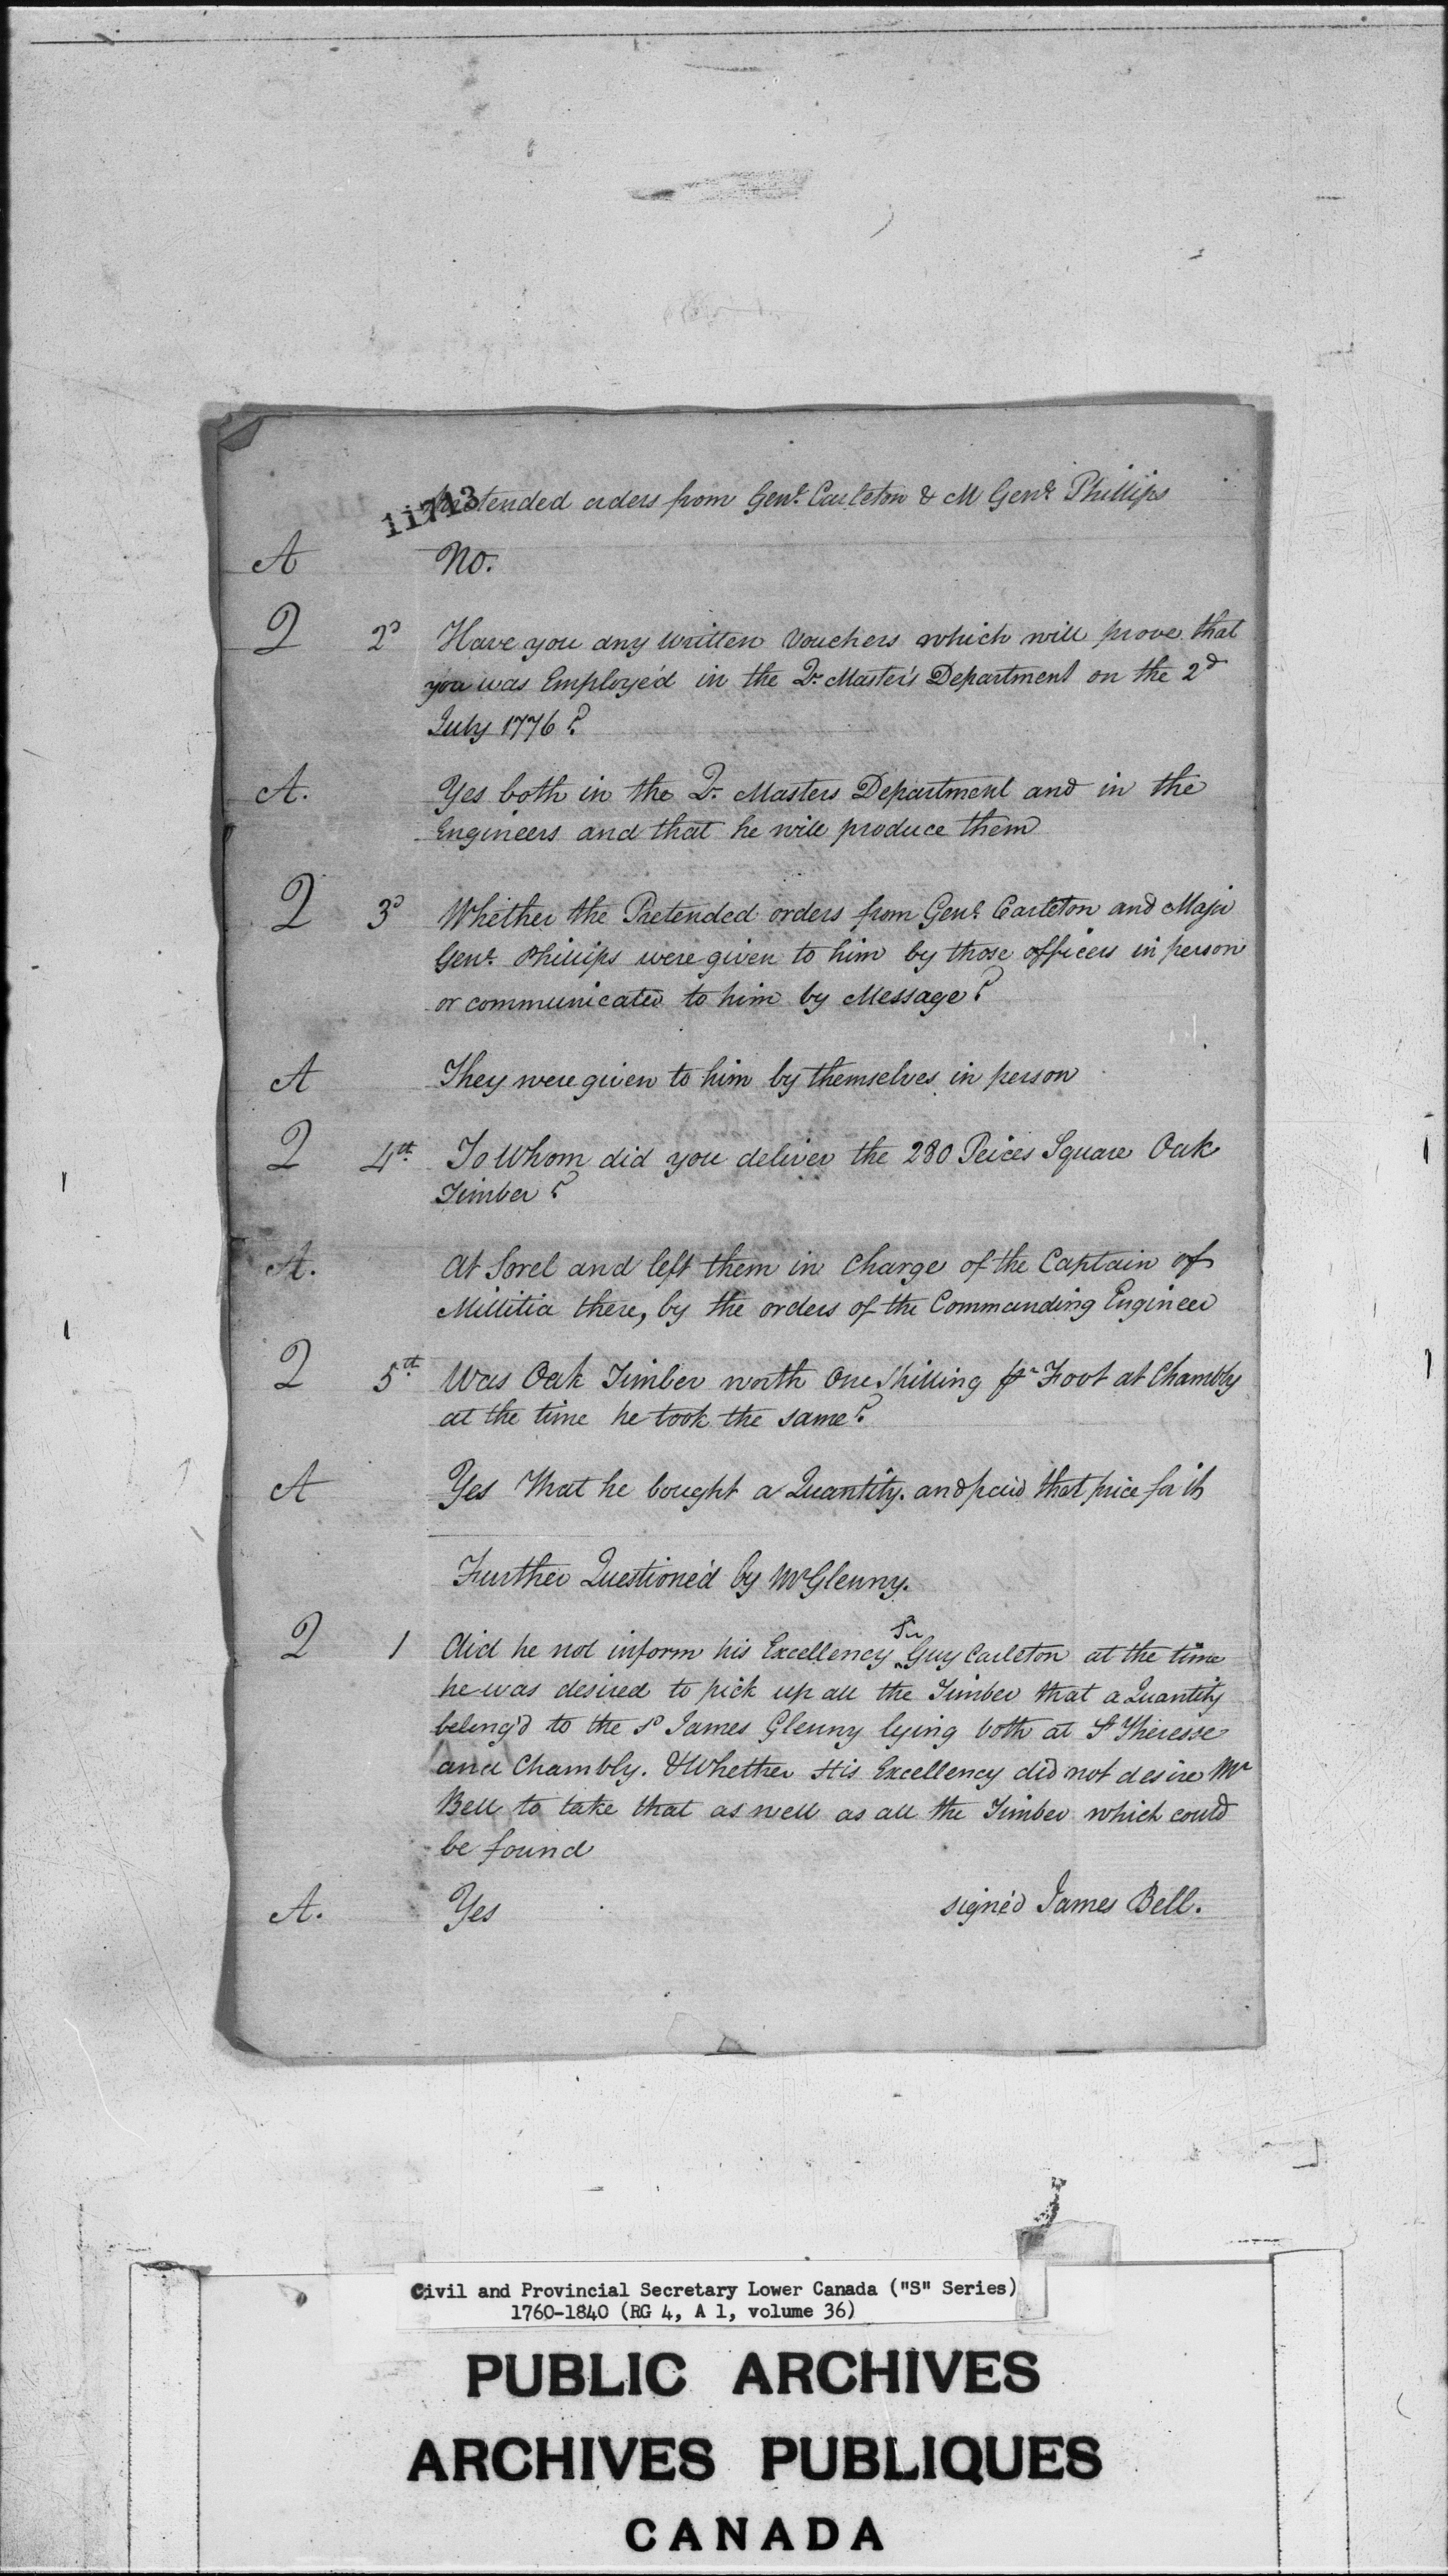 11713
Pretended orders from Genl. Carleton & M Genl. Phillips
A No.
Q 2d Have you any written Vouchers which will prove that
you was Employed in the Qr. Master's Department on the 2d
July 1776?
A. Yes both in the Qr. Masters Department and in the
Engineers and that he will produce them
Q 3d Whether the Pretended orders from Genl. Carleton and Major
Genl. Phillips were given to him by those officers in person
or communicated to him by Message?
A They were given to him by themselves in person
Q 4th To Whom did you deliver the 280 Peices Square Oak
Timber?
A. At Sorel and left them in Charge of the Captain of
Millitia there, by the orders of the Commanding Engineer
Q 5th Was Oak Timber worth One Shilling pr Foot at Chambly
at the time he took the same?
A Yes That he bought a Quantity. and paid that price for it
Further Questioned by Mr Glenny.
Q 1 did he not inform his Excellency Sir Guy Carleton at the time
he was desired to pick up all the Timber that a Quantity
belong'd to the sd James Glenny lying both at St Theresse
and Chambly. & Whether His Excellency did not desire Mr
Bell to take that as well as all the Timber which could
be found
A. Yes signed James Bell.
Civil and Provincial Secretary Lower Canada ("S" Series)
1760-1840 (RG 4, A 1, volume 36)
PUBLIC ARCHIVES
ARCHIVES PUBLIQUES
CANADA